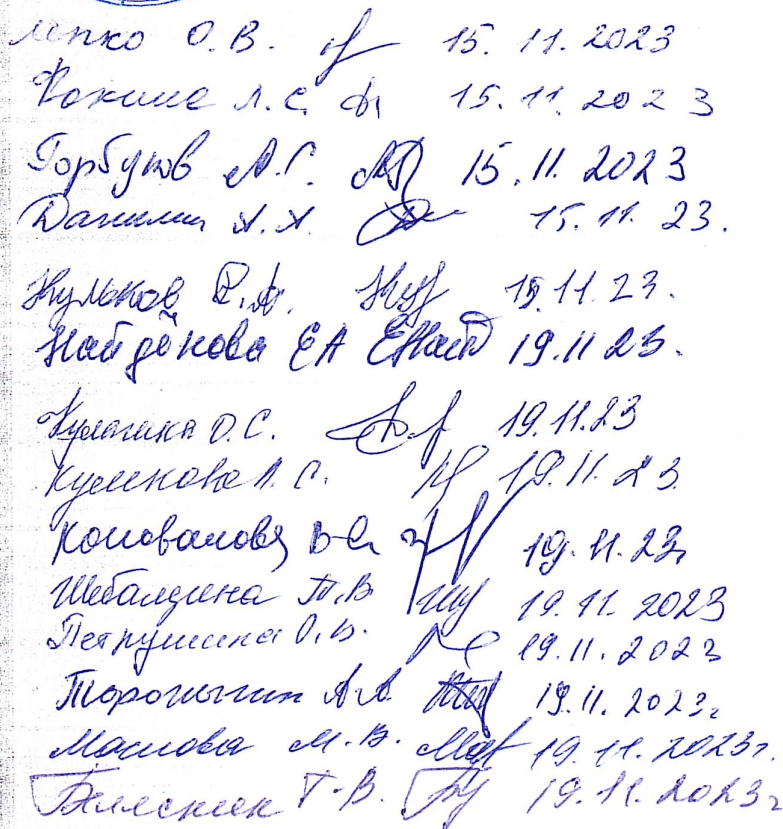 лепко О.В. 15.11.2023
Кокина Л.С. 15.11.2023
Горбунов А.С. 15.11.2023
Данилин А.А. 15.11.23.
Жульков 15.11.23.
Найдёнова ЕА ЕНайд 19.11 23.
Кулагина О.С. 19.11.23
Куликова Л.С. 19.11.23
Коновалова 19.11.23г
Шебалдина Т.В 19.11.2023
Петрушина О.В. 19.11.2023
Торопыгин А.А. 19.11.2023г
Маслова М.В. Мас 19.11.2023г.
Т.В. 19.11.2023г